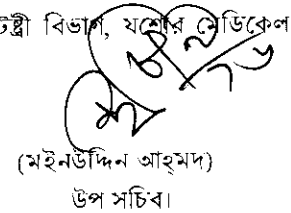 বিভাগ, যশোর মেডিকেল
(মইনউদ্দিন আহ্‌মদ)
উপ সচিব।